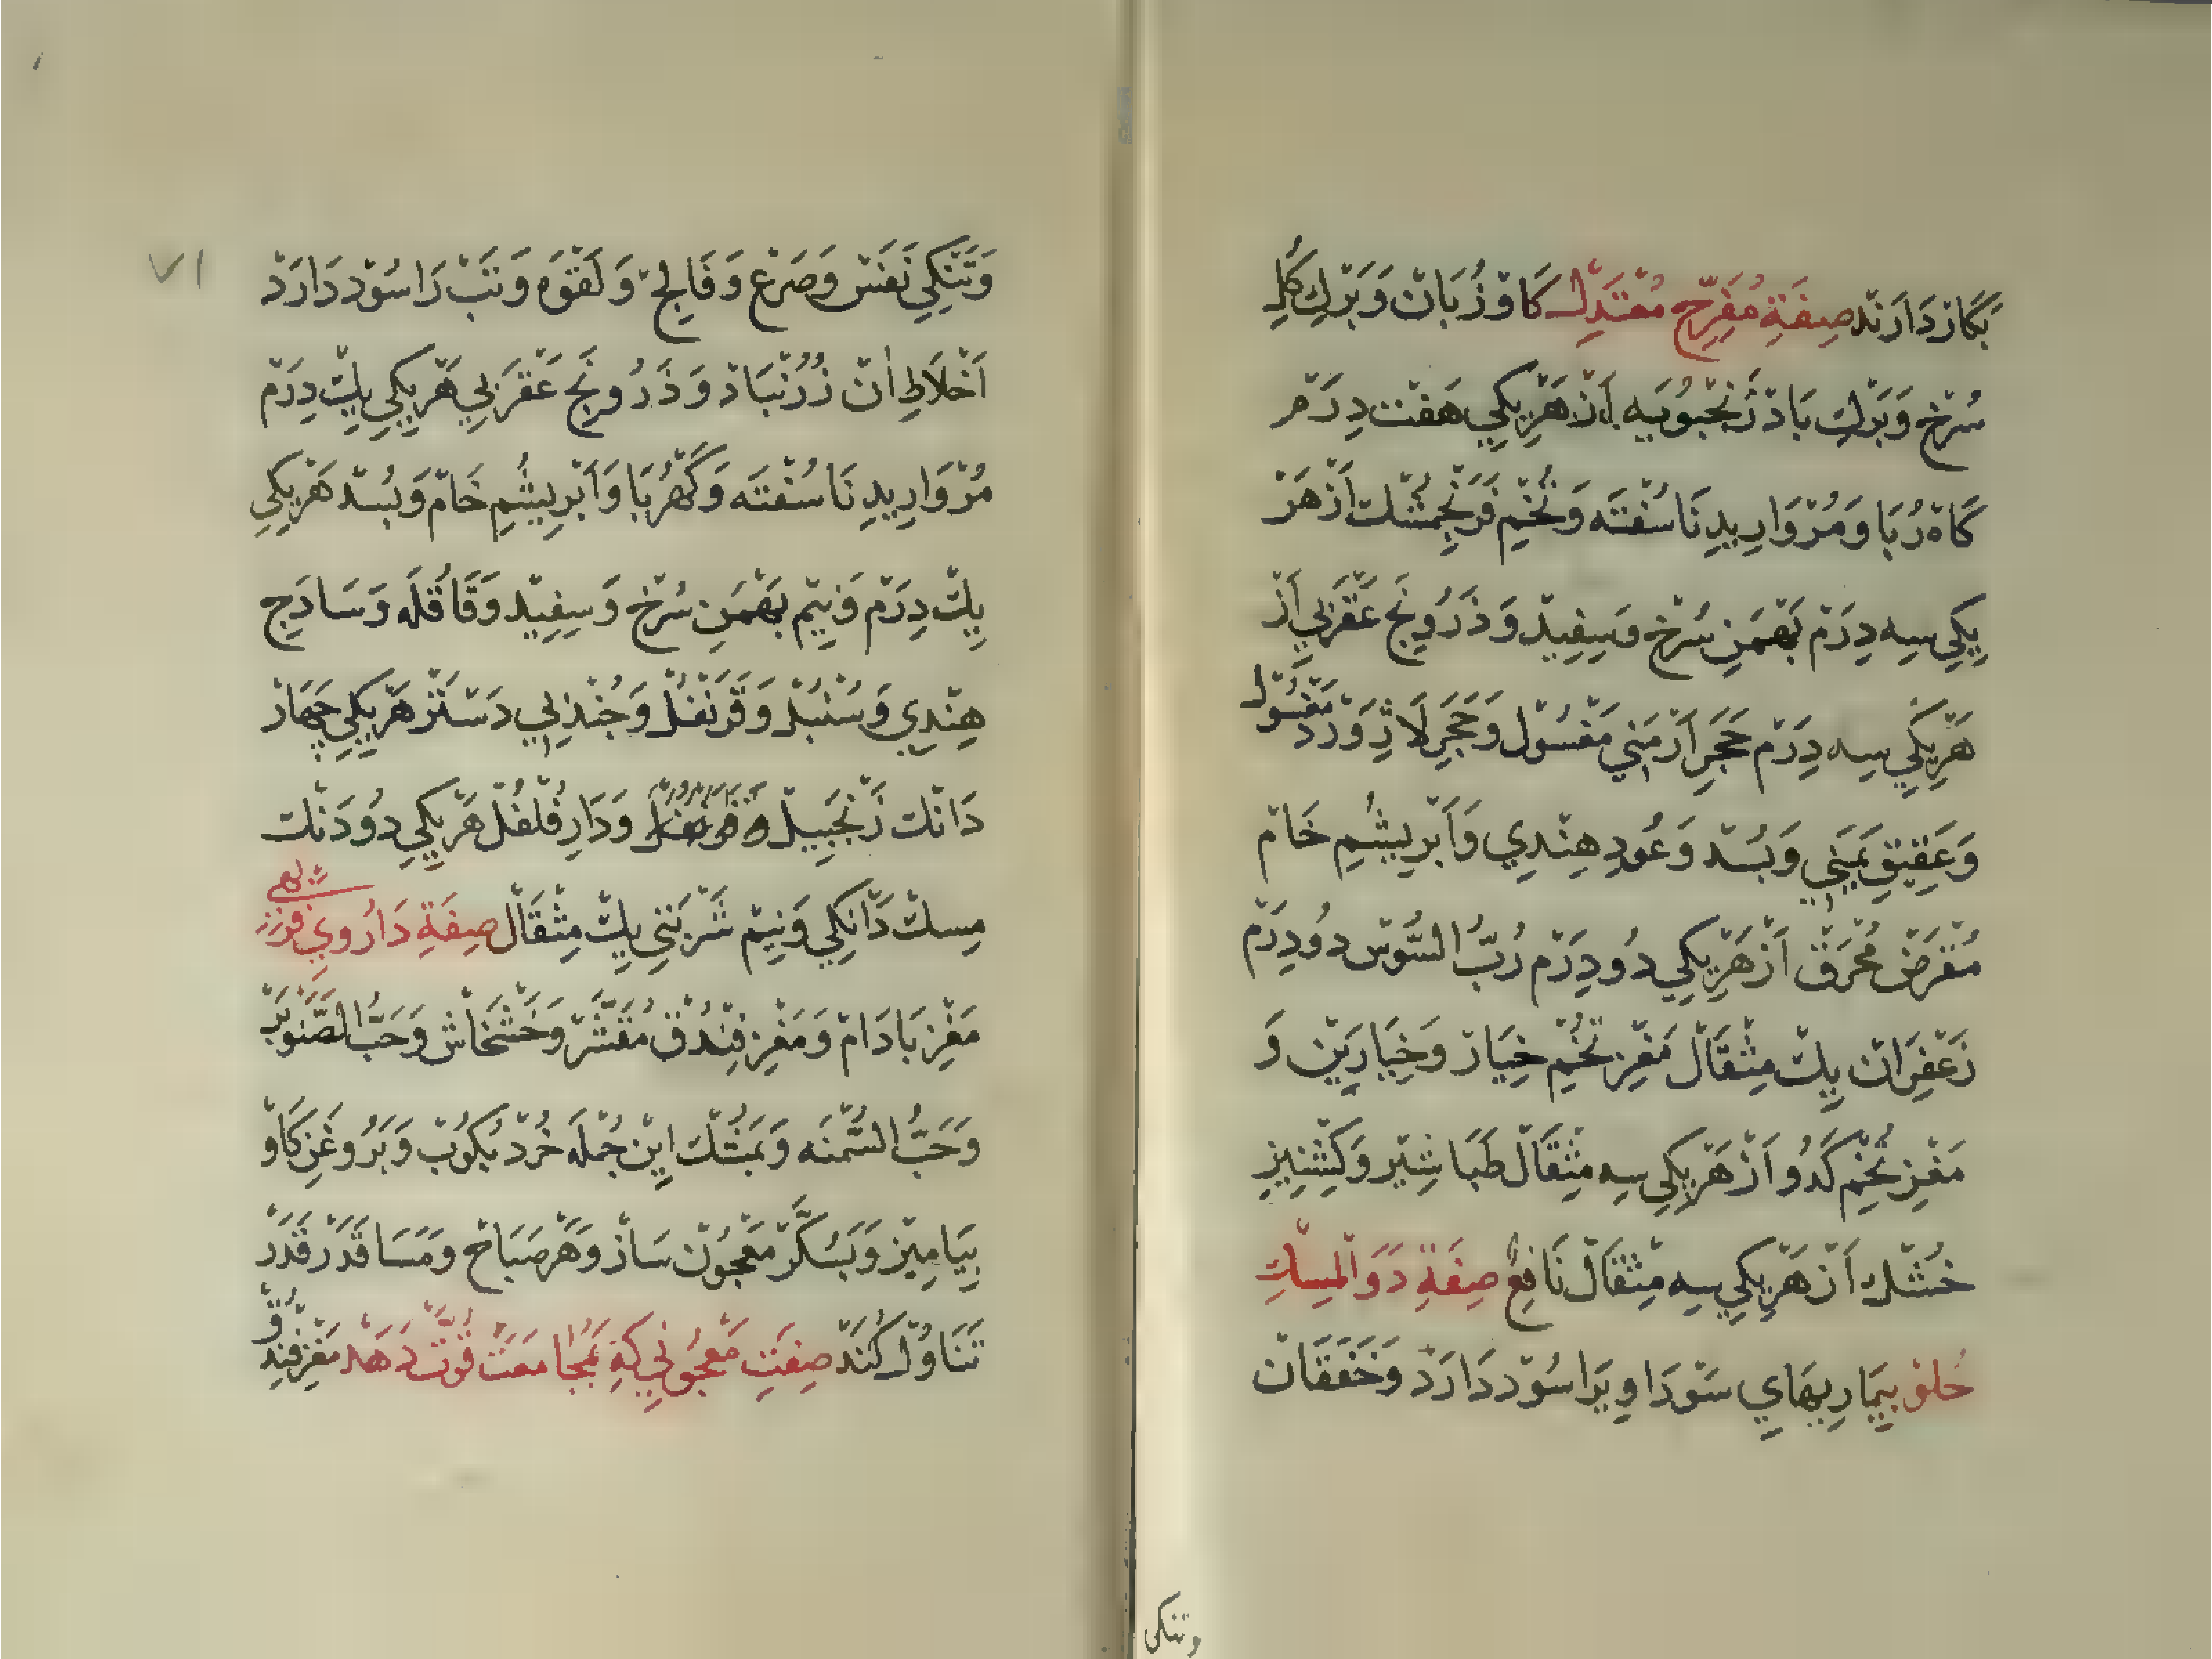 بَكَارْ دَارَنْد صِفَةِ مُفَرِّحِ مُعْتَدِلْ كَاوْ زُبَانْ وَبَرْكِ كُلِ
سُرْخ وَبَرْكِ بَادْرَنْجْبُويَه اَزْ هَرْيِكِي هَفْت دِرَمْ
كَاهْ رُبَا وَمُرْوَارِيدِ نَاسُفْتَه وَتُخْمِ فَرَنْجِمُشْك اَزْ هَرْ
يِكِي سِه دِرَمْ بَهْمَنِ سُرْخ وَسِفِيدْ وَدَرُونَجِ عَقْرَبِي اَزْ
هَرْيِكِي سِه دِرَمْ حَجَرِ اَرْمَنِي مَغْسُول وَحَجَرِ لَاژِوَرْد مَغْسُولْ
وَعَقِيقِ يَمَنِي وَبُسَّد وَعُودِ هِنْدِي وَاَبْرِيشُمِ خَامْ
مُقَرَضْ مُحْرَقْ اَزْ هَرْيِكِي دُو دِرَمْ رُبُّ السُّوسْ دُو دِرَمْ
زَعْفِرَانْ يِكْ مِثْقَالْ مَغْزِ تُخْمِ خِيَارْ وَخِيَارَيْن وَ
مَغْزِ تُخْمِ كَدُو اَزْ هَرْيِكِي سِه مِثْقَالْ طَبَاشِيْر وَكِشْنِيزِ
خُشْك اَزْ هَرْيِكِي سِه مِثْقَالْ نَافِعْ صِفَةِ دَوَالْمِسْكِ
حُلْوْ بِيمَارِيهَايِ سَوْدَاوِيرَا سُوْدْ دَارَدْ وَخَفَقَانْ
وتنكى
وَتَنْكِي نَفَسْ وَصَرْعْ وَفَالِجْ وَلَقْوَه وَتَبْ رَا سُوْد دَارَدْ
اَخْلَاطِ اٰنْ زُرُنْبَادْ وَدَرُونَجِ عَقْرَبِي هَرْيِكِي يِكْ دِرَمْ
مُرْوَارِيدِ نَاسُفْتَه وَكَهْرُبَا وَاَبْرِيشُمِ خَامْ وَبُسَّد هَرْيِكِي
يِكْ دِرَمْ وَنِيمْ بَهْمَنِ سُرْخ وَسِفِيْد وَقَاقُلَه وَسَادَجِ
هِنْدِي وَسُنْبُلْ وَقَرَنْفُلْ وَجُنْدِبِي دَسْتَرْ هَرْيِكِي چَهَارْ
دَانْك زَنْجَبِيلْ وَدَارِ فُلْفُلْ هَرْيِكِي دُو دَنْك
مِسكْ دَانْكِي وَنِيمْ شَرْبَتِي يِكْ مِثْقَالْ صِفَةِ دَارُويِ
مَغْزِ بَادَامْ وَمَغْزِ فِنْدُقْ مُقَشَّرْ وَخَشْخَاشْ وَحَبُّ الصَّنَوْبَرْ
وَحَبُّ السُّمْنَه وَبَمَشْكْ اِيْن جُمْلَه خُرْد بُكُوبْ وَبَرُوغَنِ كَاوْ
بِيَامِيْز وَبَسُكَّرْ مَعْجُوْن سَازْ وَهَرْ صَبَاحْ وَمَسَا قَدَرْ قَدَرْ
تَنَاوُلْ كُنَدْ صِفَتِ مَعْجُونِي كِهِ بَمُجَامَعَتْ قُوَّتْ دَهَدْ مَغْزِ فِنْدُقْ
٧١